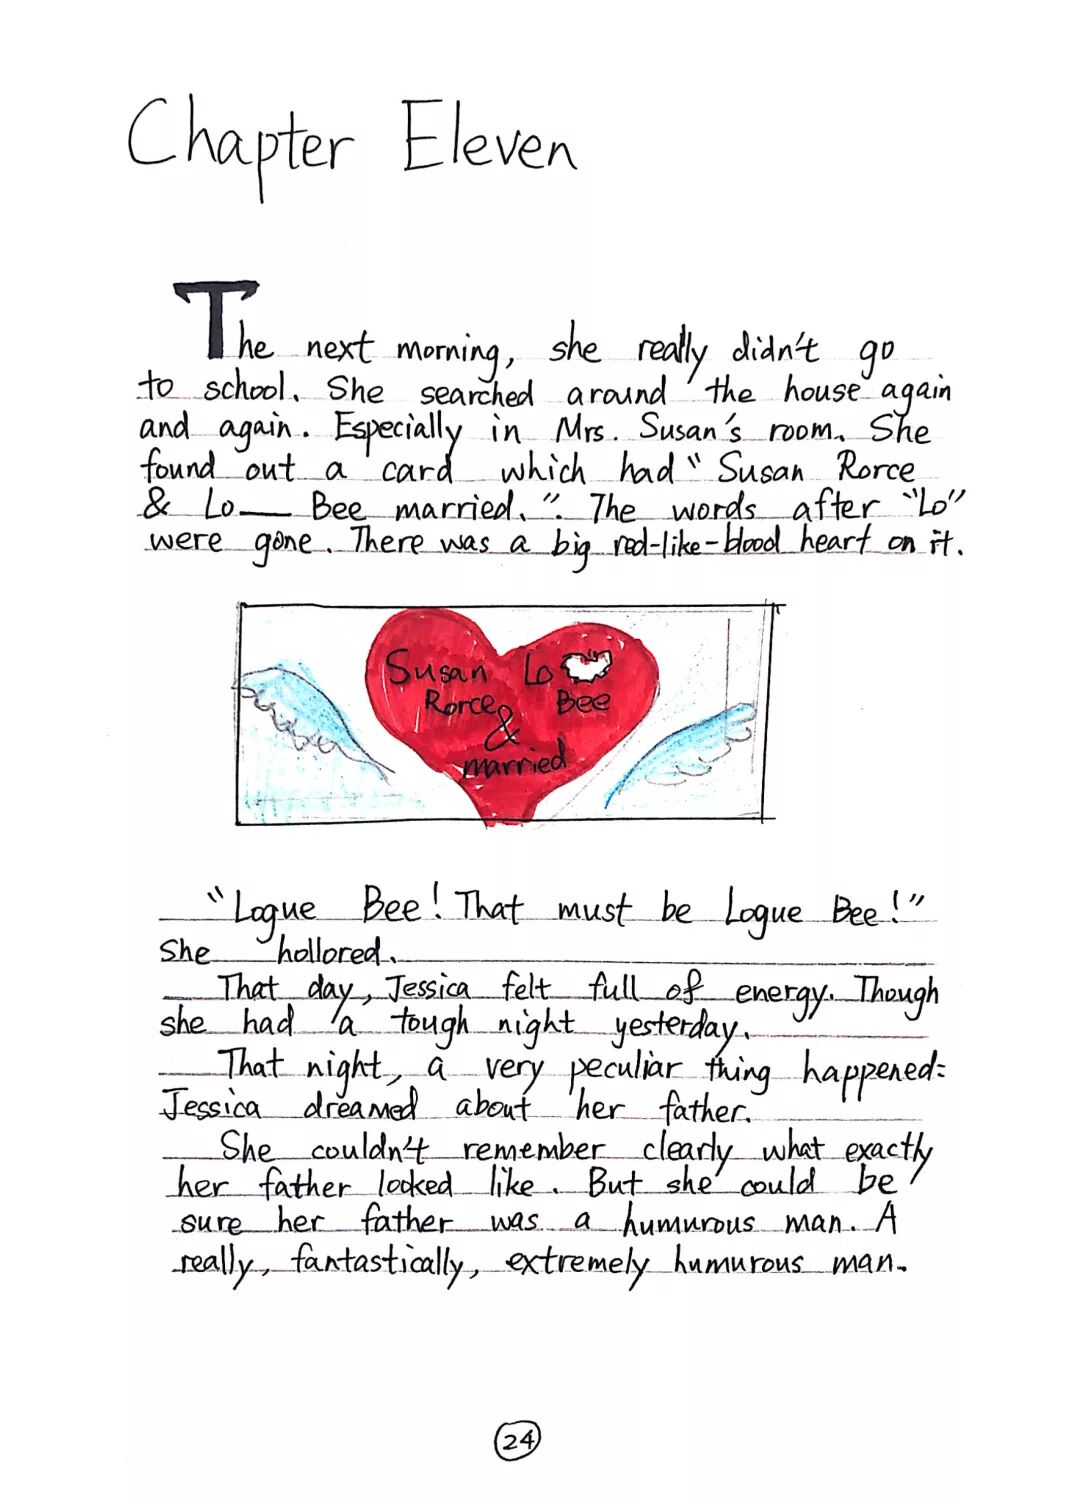 Chapter Eleven
The next morning, she really didn't go
to school. She searched around the house again
and again. Especially in Mrs. Susan's room. She
found out a card which had "Susan Rorce
& Lo— Bee married.". The words after "Lo"
were gone. There was a big red-like-blood heart on it.
Susan Lo
Rorce Bee
&
married
"Logue Bee! That must be Logue Bee!"
She hollored.
That day, Jessica felt full of energy. Though
she had a tough night yesterday.
That night, a very peculiar thing happened:
Jessica dreamed about her father.
She couldn't remember clearly what exactly
her father looked like. But she could be
sure her father was a humurous man. A
really, fantastically, extremely humurous man.
24